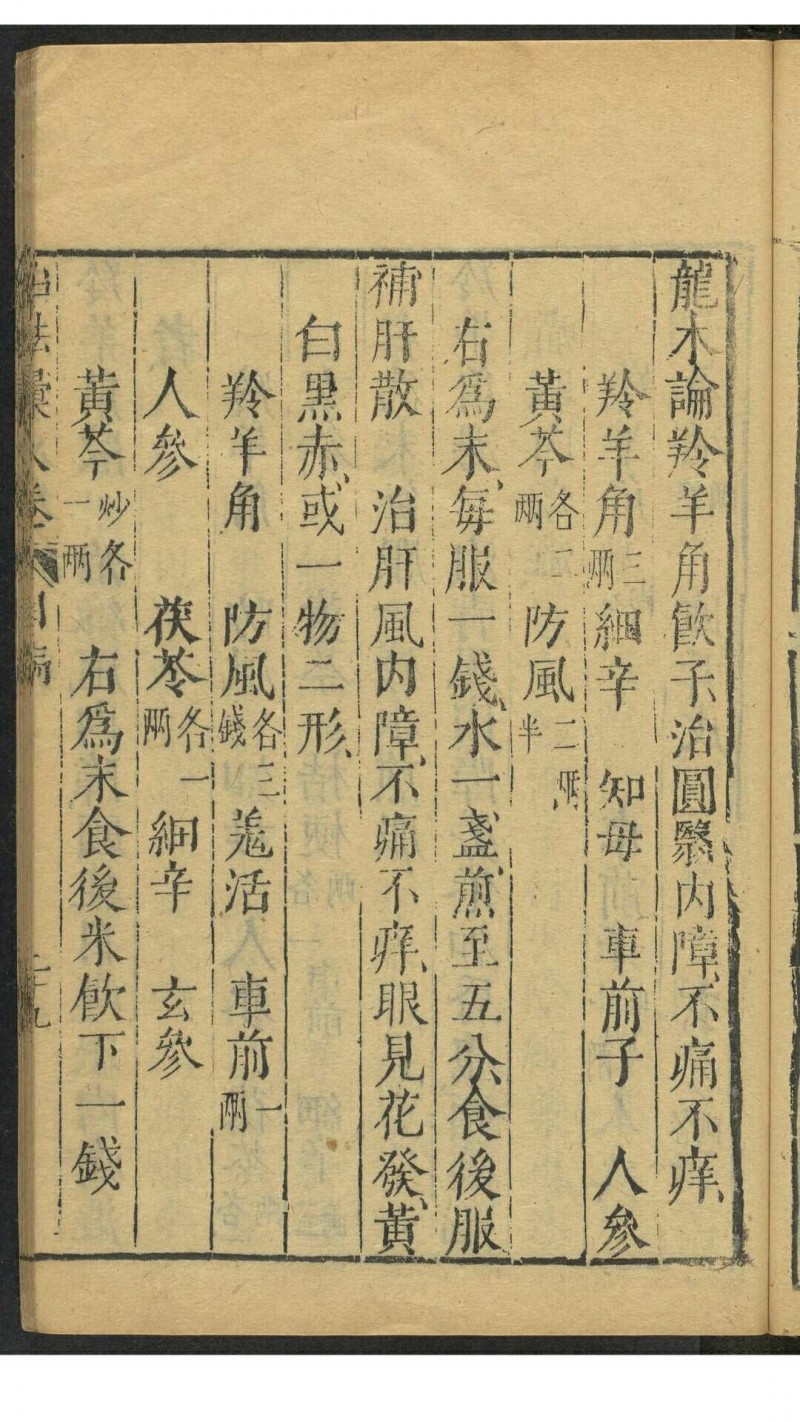 龍木論羚羊角飲子治圓翳内障、不痛不痒、
羚羊角三兩 細辛 知母 車前子 人參
黃芩各二兩 防風二兩半
右爲末、每服一錢、水一盞、煎至五分、食後服
補肝散 治肝風内障、不痛不痒、眼見花發、黃
白黑赤、或一物二形、
羚羊角 防風各三錢 羗活 車前一兩
人參 茯苓各一兩 細辛 玄參
黃芩炒各一兩 右爲末食後米飲下一錢
卷 二十九